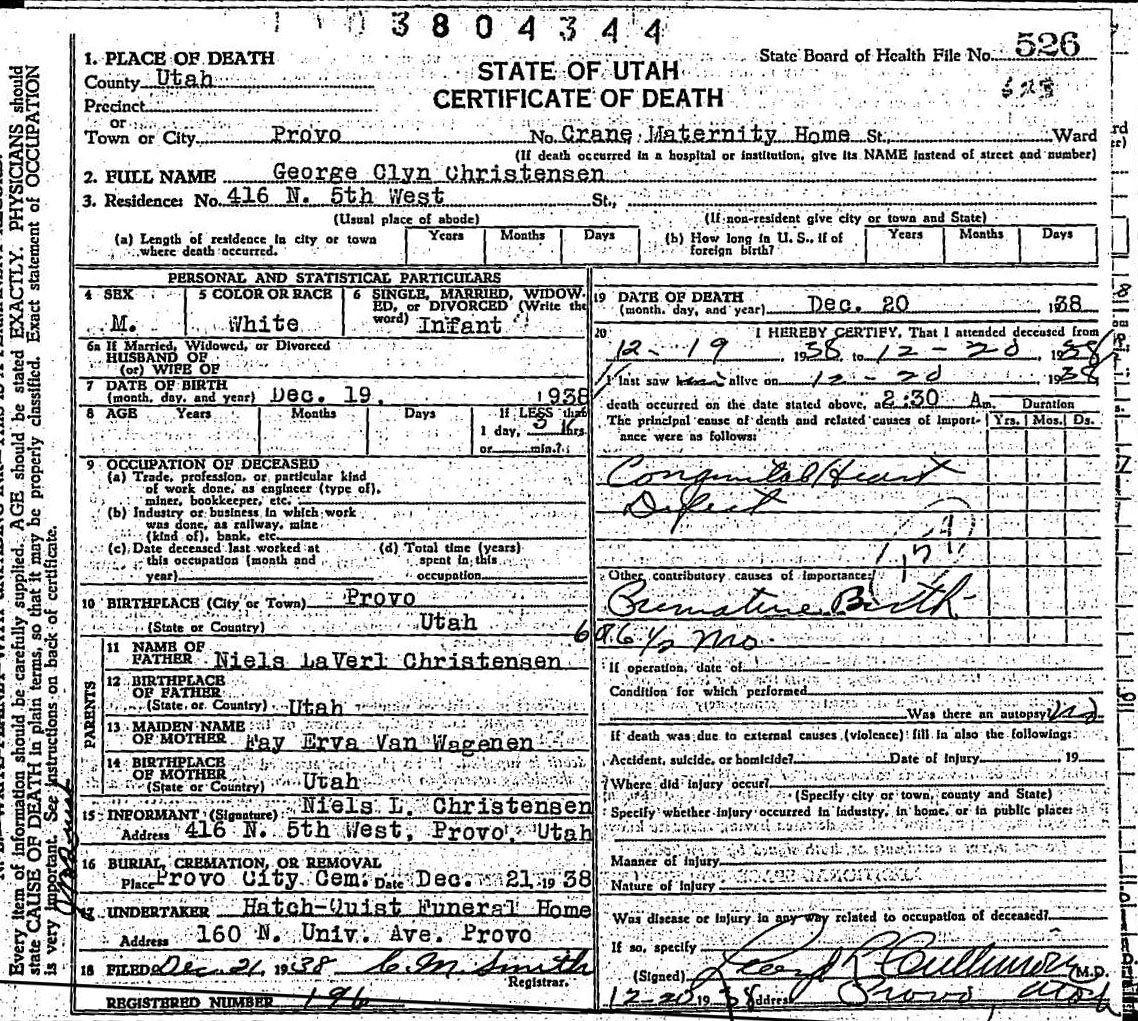 3 8 0 4 3 4 4
State Board of Health File No. 526
STATE OF UTAH
CERTIFICATE OF DEATH
1. PLACE OF DEATH
County Utah
Precinct
or
Town or City Provo No. Crane Maternity Home St., Ward
(If death occurred in a hospital or institution, give its NAME instead of street and number)
2. FULL NAME George Clyn Christensen
3. Residence: No. 416 N. 5th West St.,
(Usual place of abode) (If non-resident give city or town and State)
(a) Length of residence in city or town where death occurred. Years Months Days
(b) How long in U. S., if of foreign birth? Years Months Days
PERSONAL AND STATISTICAL PARTICULARS
4 SEX M.
5 COLOR OR RACE White
6 SINGLE, MARRIED, WIDOWED, or DIVORCED (Write the word) Infant
6a If Married, Widowed, or Divorced
HUSBAND OF
(or) WIFE OF
7 DATE OF BIRTH
(month, day, and year) Dec. 19, 1938
8 AGE Years Months Days If LESS than
1 day, hrs.
or min.?
9 OCCUPATION OF DECEASED
(a) Trade, profession, or particular kind
of work done, as engineer (type of),
miner, bookkeeper, etc.
(b) Industry or business in which work
was done, as railway, mine
(kind of), bank, etc.
(c) Date deceased last worked at
this occupation (month and
year)
(d) Total time (years)
spent in this
occupation
10 BIRTHPLACE (City or Town) Provo
(State or Country) Utah
PARENTS
11 NAME OF
FATHER Niels LaVerl Christensen
12 BIRTHPLACE
OF FATHER
(State or Country) Utah
13 MAIDEN NAME
OF MOTHER Fay Erva Van Wagenen
14 BIRTHPLACE
OF MOTHER
(State or Country) Utah
15 INFORMANT (Signature) Niels L. Christensen
Address 416 N. 5th West, Provo, Utah
16 BURIAL, CREMATION, OR REMOVAL
Place Provo City Cem. Date Dec. 21, 1938
17 UNDERTAKER Hatch-Quist Funeral Home
Address 160 N. Univ. Ave. Provo
18 FILED Dec 21, 1938 C. M. Smith
Registrar.
REGISTERED NUMBER 196
19 DATE OF DEATH
(month, day, and year) Dec. 20 1938
20 I HEREBY CERTIFY, That I attended deceased from
12-19, 1938, to 12-20, 1938
I last saw him alive on 12-20 1938
death occurred on the date stated above, at 2:30 A m. Duration
The principal cause of death and related causes of importance were as follows: Yrs. Mos. Ds.
Congenital Heart
Defect
Other contributory causes of importance:
Premature Birth
6 1/2 mo.
If operation, date of
Condition for which performed
Was there an autopsy? no
If death was due to external causes (violence) fill in also the following:
Accident, suicide, or homicide? Date of injury , 19
Where did injury occur?
(Specify city or town, county and State)
Specify whether injury occurred in industry, in home, or in public place:
Manner of injury
Nature of injury
Was disease or injury in any way related to occupation of deceased?
If so, specify
(Signed) Lloyd L Cullimore M.D.
12-20 1938 Address Provo, Utah
Every item of information should be carefully supplied. AGE should be stated EXACTLY. PHYSICIANS should
state CAUSE OF DEATH in plain terms, so that it may be properly classified. Exact statement of OCCUPATION
is very important. See instructions on back of certificate.